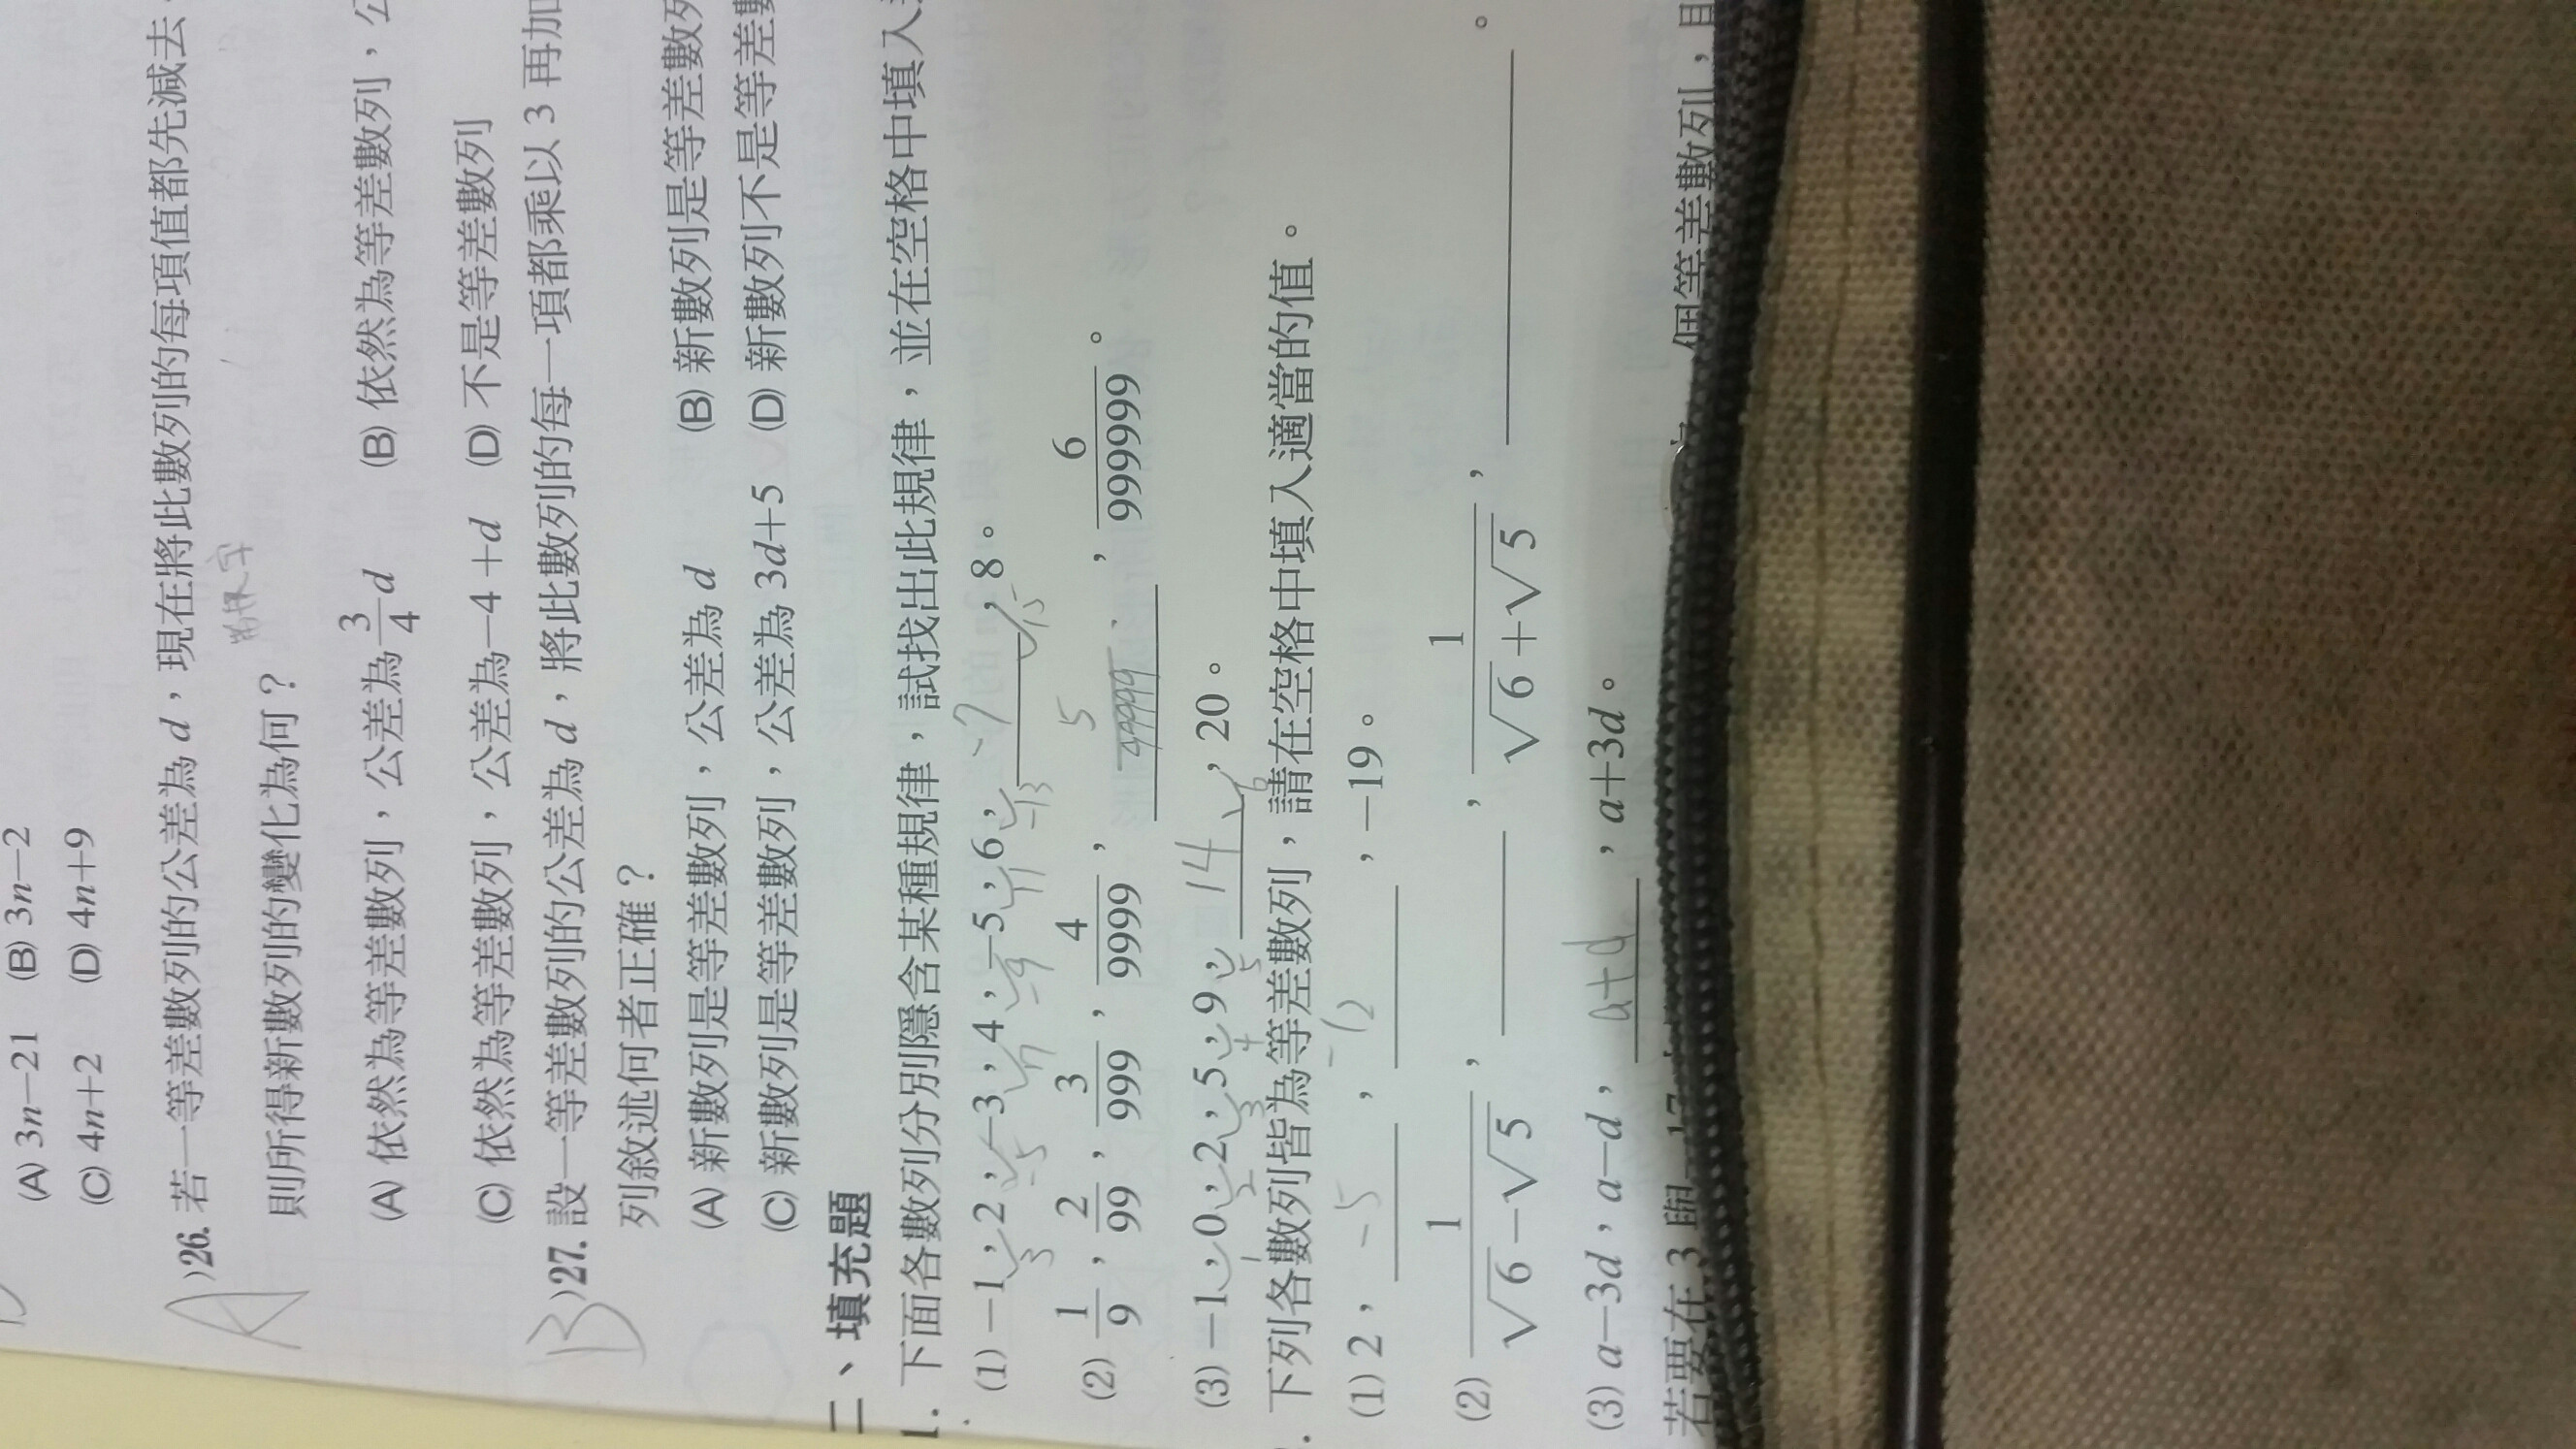 (A) 3n−21 (B) 3n−2
(C) 4n+2 (D) 4n+9
A )26. 若一等差數列的公差為 d，現在將此數列的每項值都先減去
則所得新數列的變化為何？
(A) 依然為等差數列，公差為 3/4 d (B) 依然為等差數列，公
(C) 依然為等差數列，公差為−4+d (D) 不是等差數列
B )27. 設一等差數列的公差為 d，將此數列的每一項都乘以 3 再加
列敘述何者正確？
(A) 新數列是等差數列，公差為 d (B) 新數列是等差數列
(C) 新數列是等差數列，公差為 3d+5 (D) 新數列不是等差數
二、填充題
1. 下面各數列分別隱含某種規律，試找出此規律，並在空格中填入
(1) −1，2，−3，4，−5，6， −7 ，8。
3 −5 7 −9 11 −13 15
(2) 1/9，2/99，3/999，4/9999， 5/99999 ，6/999999。
(3) −1，0，2，5，9， 14 ，20。
1 2 3 4 5 6
. 下列各數列皆為等差數列，請在空格中填入適當的值。
(1) 2， −5 ， −12 ，−19。
(2) 1/(√6−√5)，＿＿＿，1/(√6+√5)，＿＿＿。
(3) a−3d，a−d， a+d ，a+3d。
若要在 3 與
個等差數列，